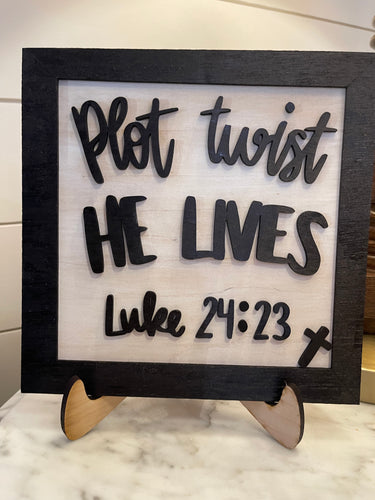 Plot twist
HE LIVES
Luke 24:23